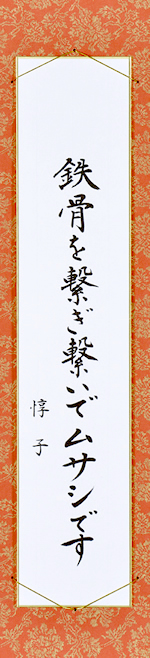 鉄骨を繋ぎ繋いでムサシです
惇子